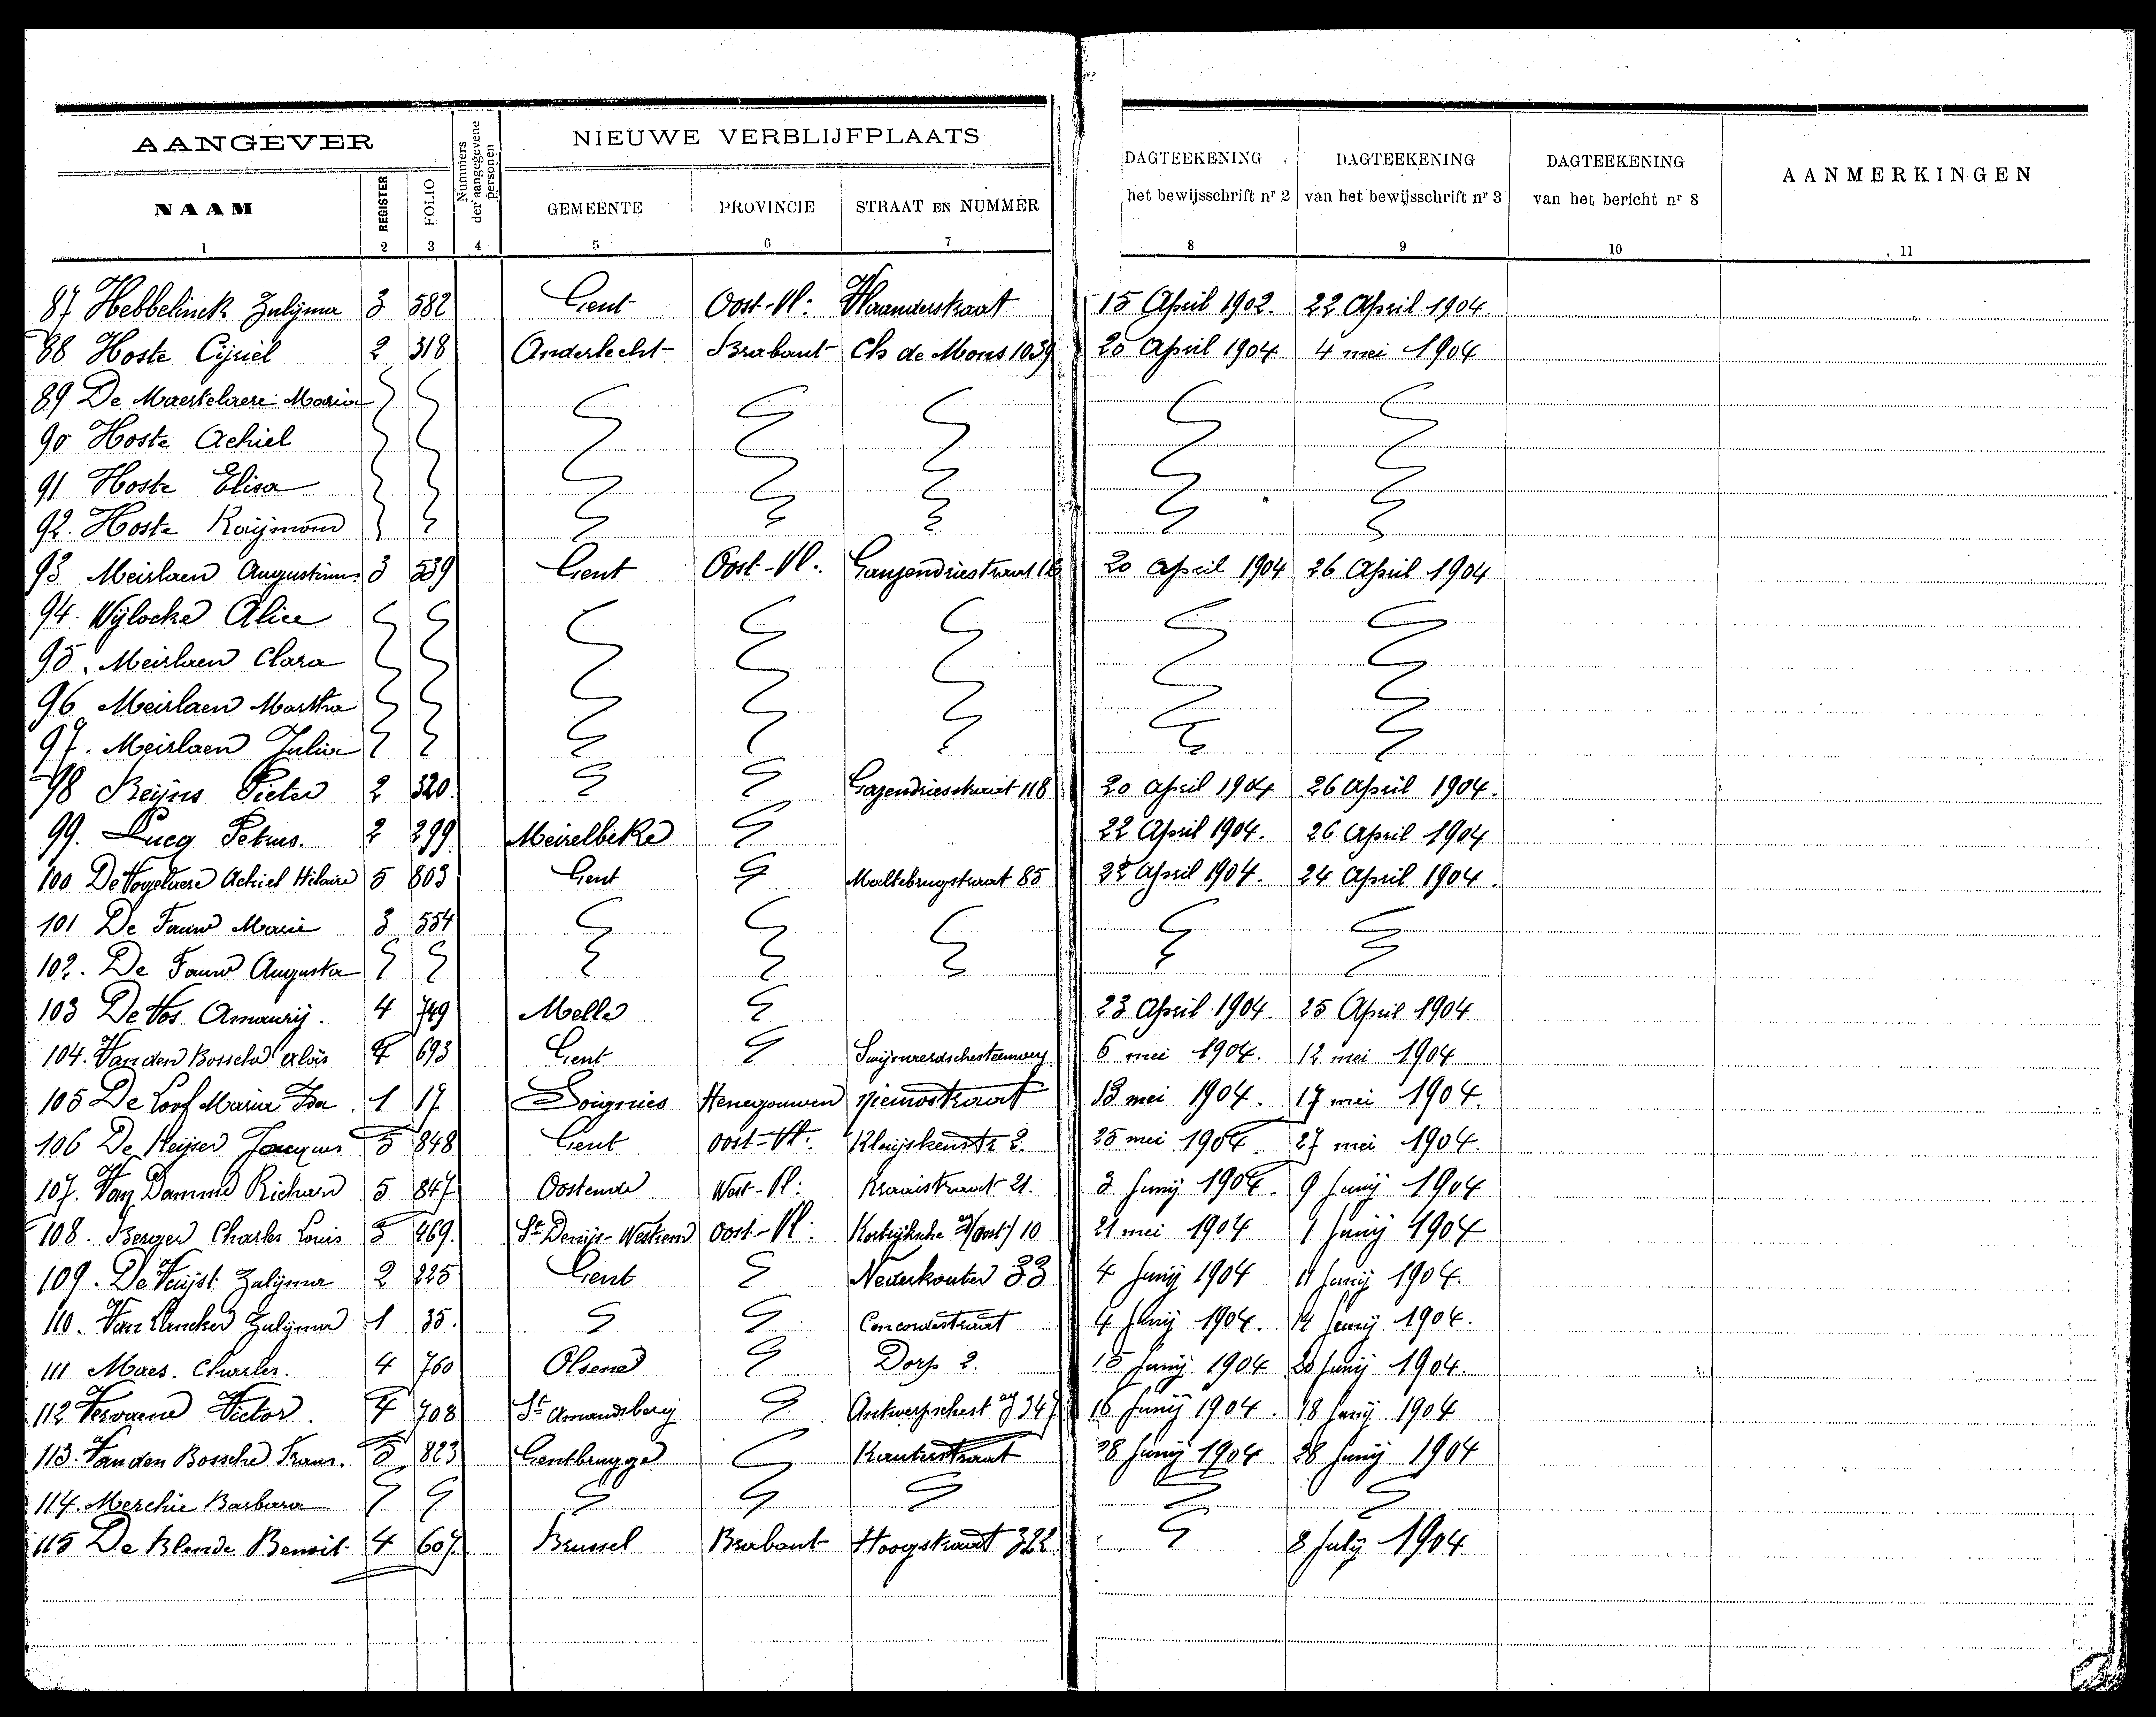 AANGEVER NIEUWE VERBLIJFPLAATS
NAAM REGISTER FOLIO Nummers der aangegevene personen GEMEENTE PROVINCIE STRAAT EN NUMMER DAGTEEKENING het bewijsschrift nr 2 DAGTEEKENING van het bewijsschrift nr 3 DAGTEEKENING van het bericht nr 8 AANMERKINGEN
1 2 3 4 5 6 7 8 9 10 11
87 Hebbelinck Zulijma 3 582 Gent Oost-Vl: Vlaanderstraat 15 April 1902. 22 April 1904.
88 Hoste Cyriel 2 318 Anderlecht Brabant Ch de Mons 1039 20 April 1904 4 mei 1904
89 De Maertelaere Maria
90 Hoste Achiel
91 Hoste Elisa
92. Hoste Raijmond
93 Meirlaen Augustinus 3 539 Gent Oost-Vl. 20 April 1904 26 April 1904
94. Wijlocke Alice
95. Meirlaen Clara
96 Meirlaen Martha
97. Meirlaen Julia
98 Reijns Pieter 2 320. Gazendriesstraat 118 20 April 1904 26 April 1904.
99. Lucq Petrus. 2 299 Meirelbeke 22 April 1904. 26 April 1904
100 De Vogelaere Achiel Hilaire 5 803 Gent Maltebrugstraat 85 22 April 1904. 24 April 1904.
101 De Fauw Marie 3 554
102. De Fauw Augusta
103 De Vos Amaurij. 4 749 Melle 23 April 1904. 25 April 1904
104. Van den Bossche Aloïs 4 693 Gent Swijnaerdschesteenweg 6 mei 1904. 12 mei 1904
105 De Loof Maria 1 17 Soignies Henegouwen Nieuwstraat 13 mei 1904. 17 mei 1904.
106 De Keijser Jacques 5 848 Gent Oost-Vl. Kluijskenstr 2. 25 mei 1904. 27 mei 1904.
107. Van Damme Richard 5 847 Oostende West-Vl: 21. 3 Junij 1904. 9 Junij 1904
108. Berger Charles Louis 3 469. St Denijs-Westrem Oost-Vl: Kortrijksche 10 21 mei 1904 1 Junij 1904
109. De Vuijst Zulijma 2 225 Gent Nederkouter 33 4 Junij 1904 11 Junij 1904.
110. Zulijma 1 35. Concordestraat 4 Junij 1904. 14 Junij 1904.
111 Maes. Charles. 4 760 Olsene Dorp 2. 15 Junij 1904 20 Junij 1904.
112 Vervaene Victor. 4 708 St Amandsberg Antwerpschest 347 16 Junij 1904. 18 Junij 1904
113. Van den Bossche Frans. 5 823 Gentbrugge Kouterstraat 28 Junij 1904 28 Junij 1904
114. Merchie Barbara
115 De Blende Benoit 4 607. Brussel Brabant Hoogstraat 322 8 July 1904